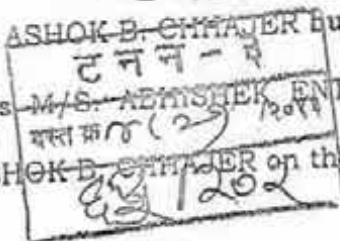 ASHOK B. CHHAJER Bu
ट न न - ई
s M/S. ABHISHEK ENT
दस्त क्र ७४ ( २ ) /२०१२
HOK B. CHHAJER on th
/ २०२